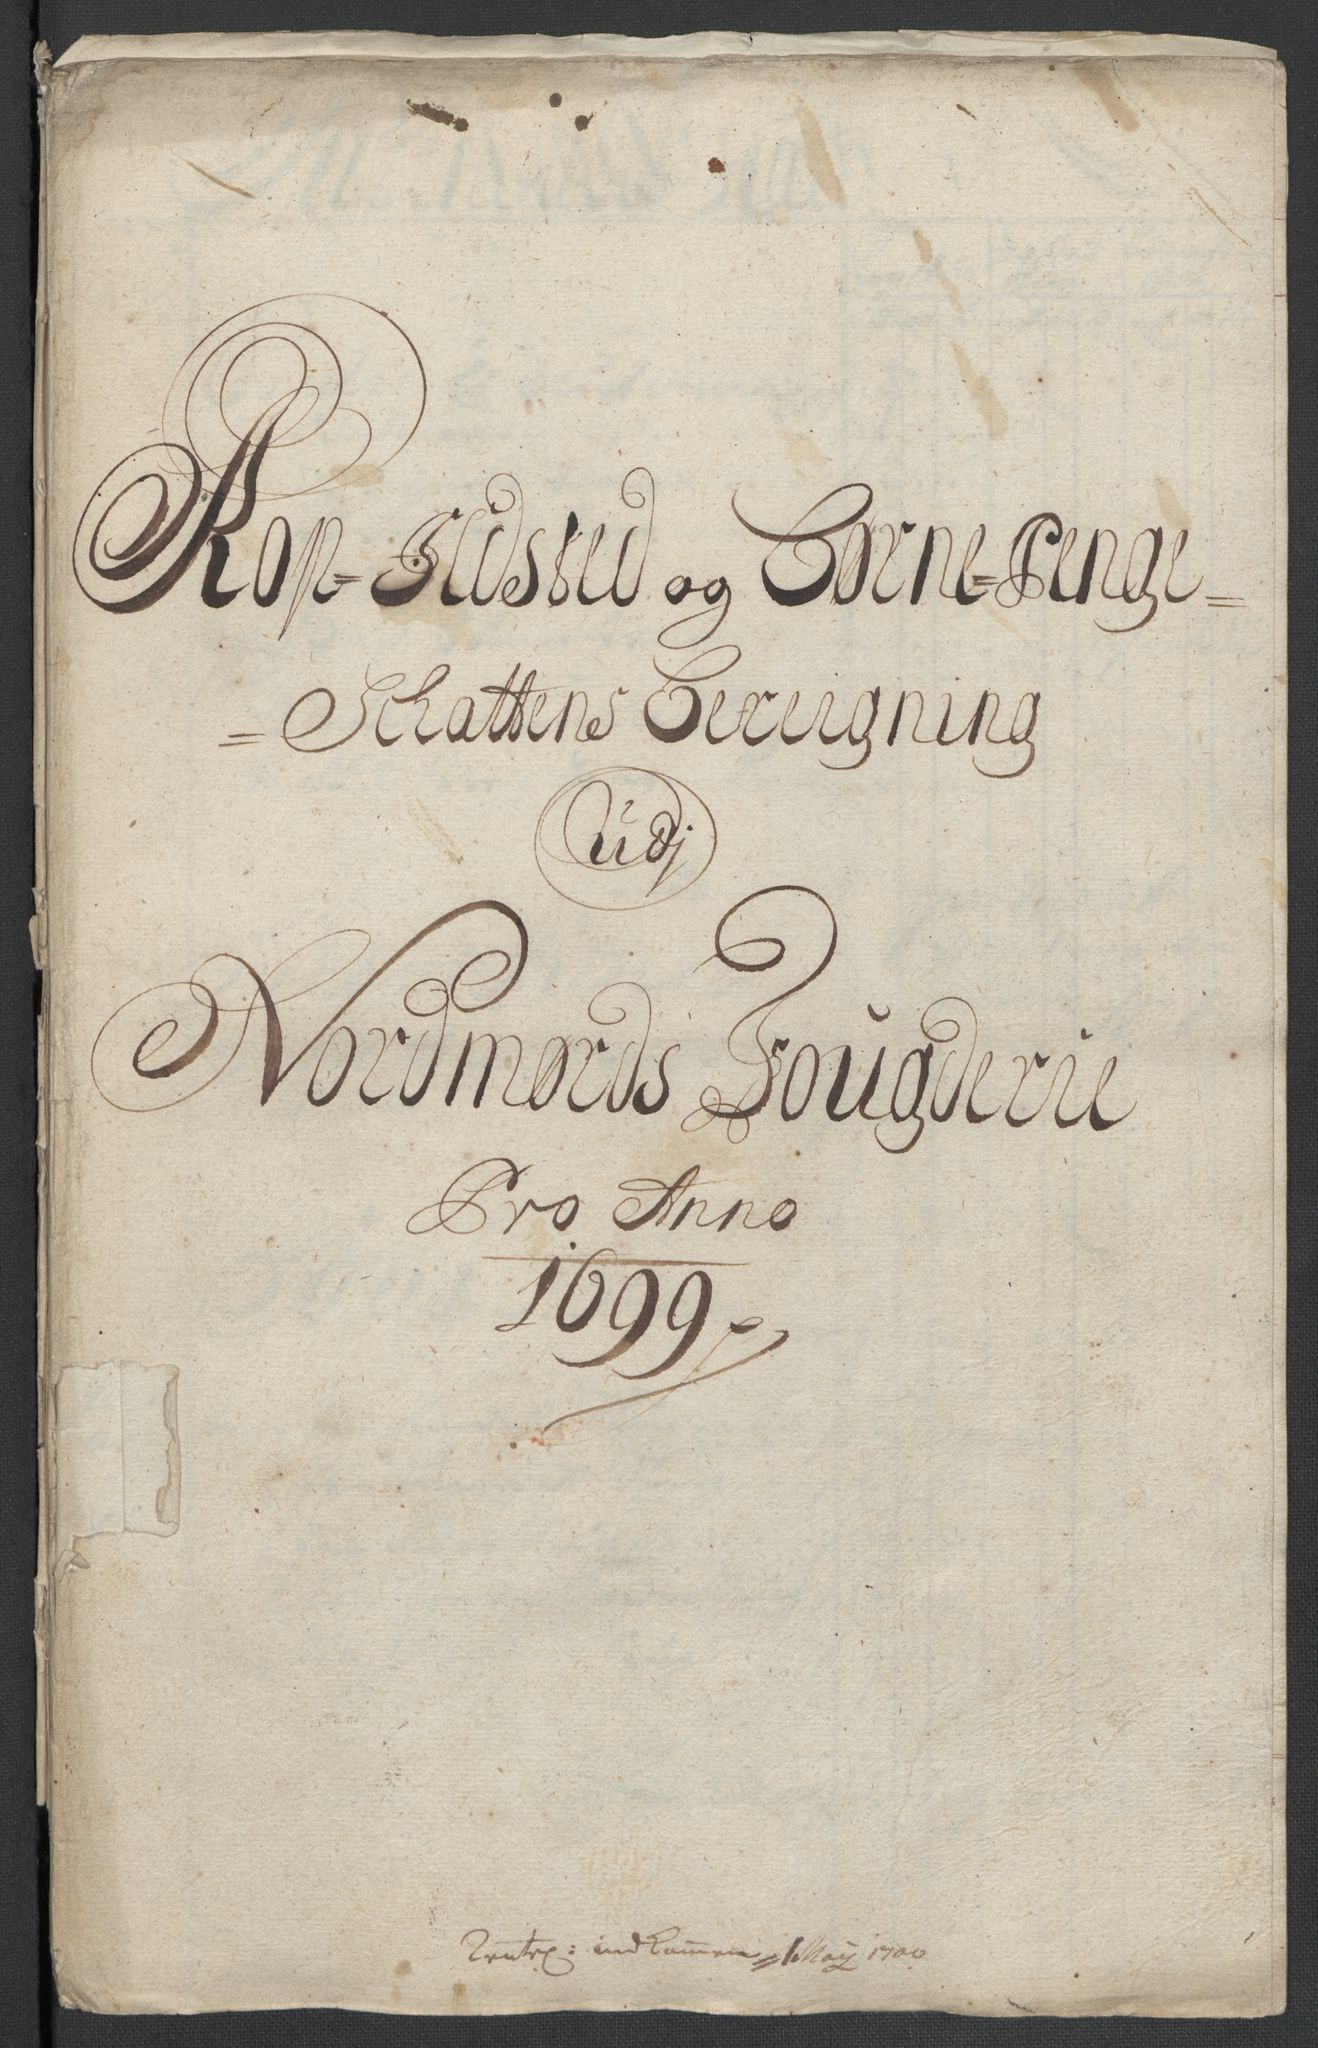 Kop= Ildsted og Horne=Penge=
=Schattens Bereigning
Udj
Nordmørds Fougderie
Pro Anno
1699
indkommen 1 May 1700